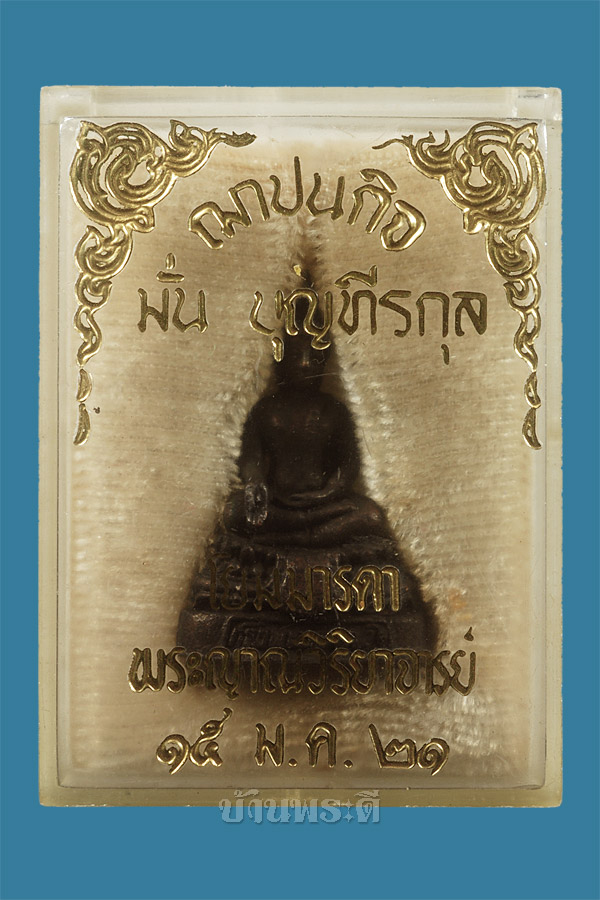 ฌาปนกิจ
มั่น บุญทีรกุล
โยมมารดา
พระญาณวิริยาจารย์
๑๕ ม.ค. ๒๑
บ้านพระดี